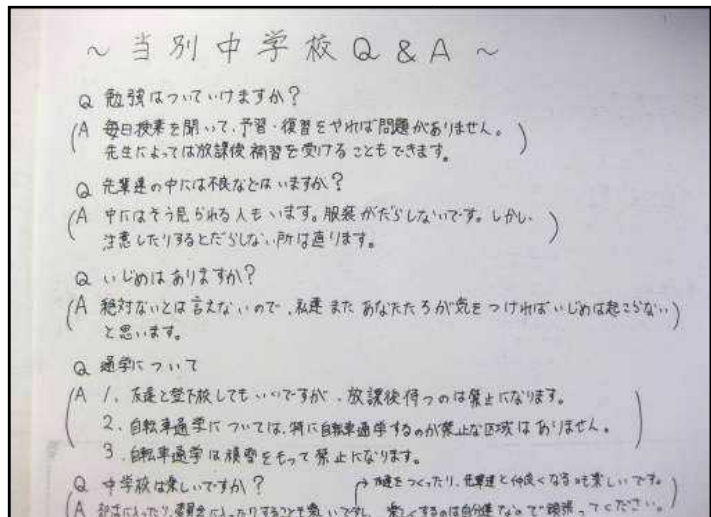 ～当別中学校Q&A～
Q 勉強はついていけますか？
(A 毎日授業を聞いて、予習・復習をやれば問題がありません。
先生によっては放課後補習を受けることもできます。)
Q 先輩達の中には不良などはいますか？
(A 中にはそう見られる人もいます。服装がだらしないです。しかし、
注意したりするとだらしない所は直ります。)
Q いじめはありますか？
(A 絶対ないとは言えないので、私達またあなたたちが気をつければいじめは起こらない
と思います。)
Q 通学について
(A 1. 友達と登下校してもいいですが、放課後待つのは禁止になります。
2. 自転車通学については、特に自転車通学するのが禁止な区域はありません。
3. 自転車通学は積雪をもって禁止になります。)
Q 中学校は楽しいですか？
→ 友達をつくったり、先輩達と仲良くなるのも楽しいです。
(A 部活に入ったり、委員会に入ったりすることも楽しいですし、楽しくするのは自分達なので頑張ってください。)